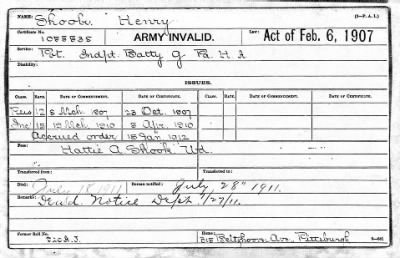 NAME: Shook Henry (3-P. A. I.)
Certificate No. 1085535 ARMY INVALID. Law: Act of Feb. 6, 1907
Service: Pvt. Indpt. Batty G Pa. H. A
Disability:
ISSUES.
CLASS. RATE. DATE OF COMMENCEMENT. DATE OF CERTIFICATE. CLASS. RATE. DATE OF COMMENCEMENT. DATE OF CERTIFICATE.
12 5 Mch. 1907 23 Oct. 1907
Inc 15 Mch. 1910 8 Apr. 1910
Accrued order 15 Jan 1912
Hattie A Shook Wd.
Transferred from: Transferred to:
Died: July 18, 1911 Bureau notified: July 28" 1911.
Remarks: Notice Dept 7/27/11.
Former Roll No. Home:
Beltzhoover Ave., Pittsburgh